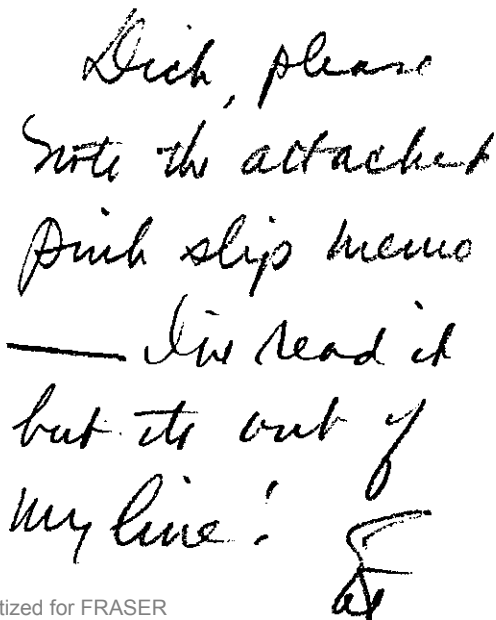 Dick, please
note the attached
pink slip memo
— I've read it
but its out of
my line!
tized for FRASER